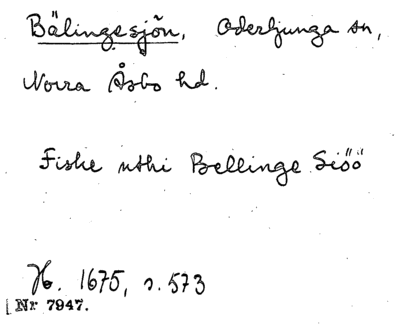 Bälingesjön, Oderljunga sn,
Norra Åsbo hd.
Fiske uthi Bellinge Siöö
Hb. 1675, s. 573
Nr 7947.